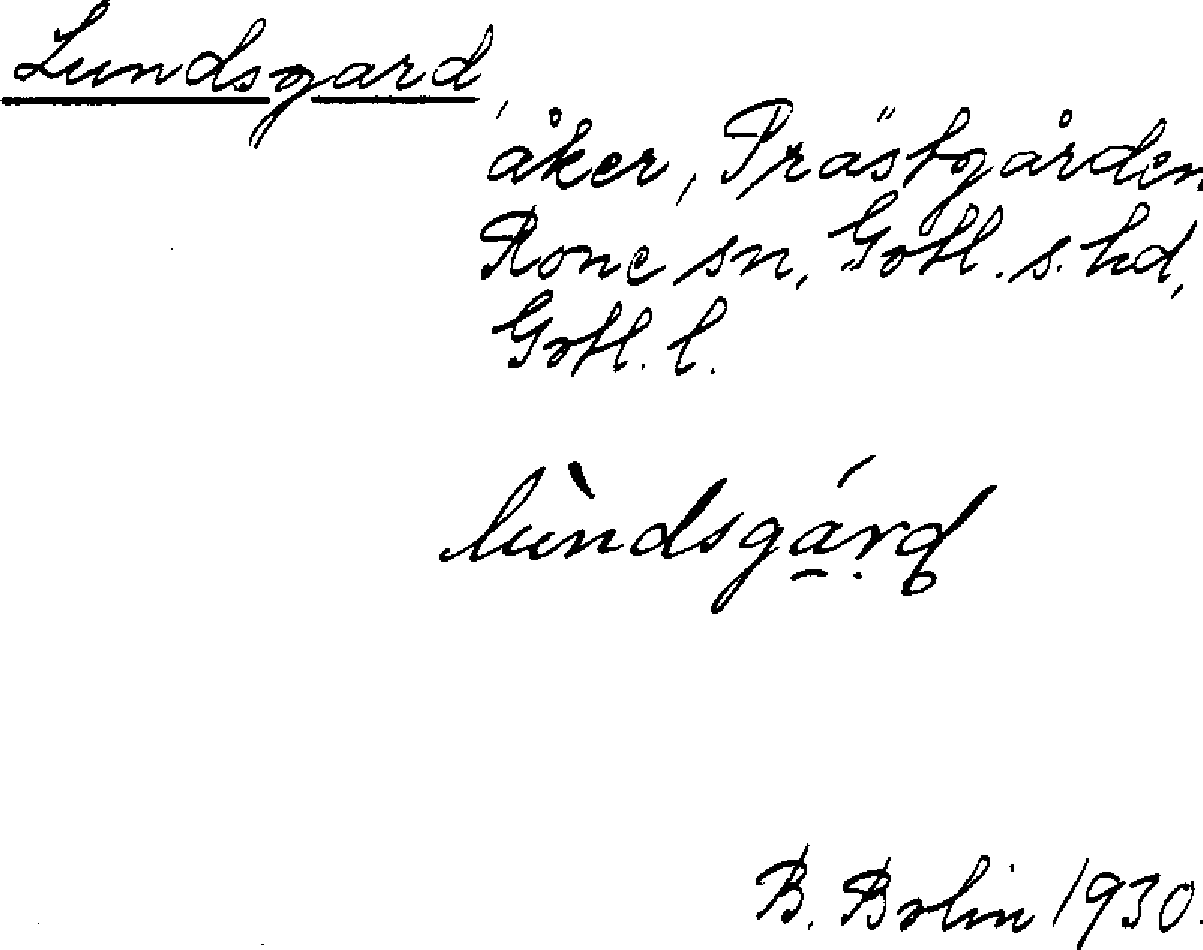 Lundsgard,
åker, Prästgården
Rone sn, Gotl. s. hd,
Gotl. l.
lùndsgá̱rd
B. Bolin 1930.